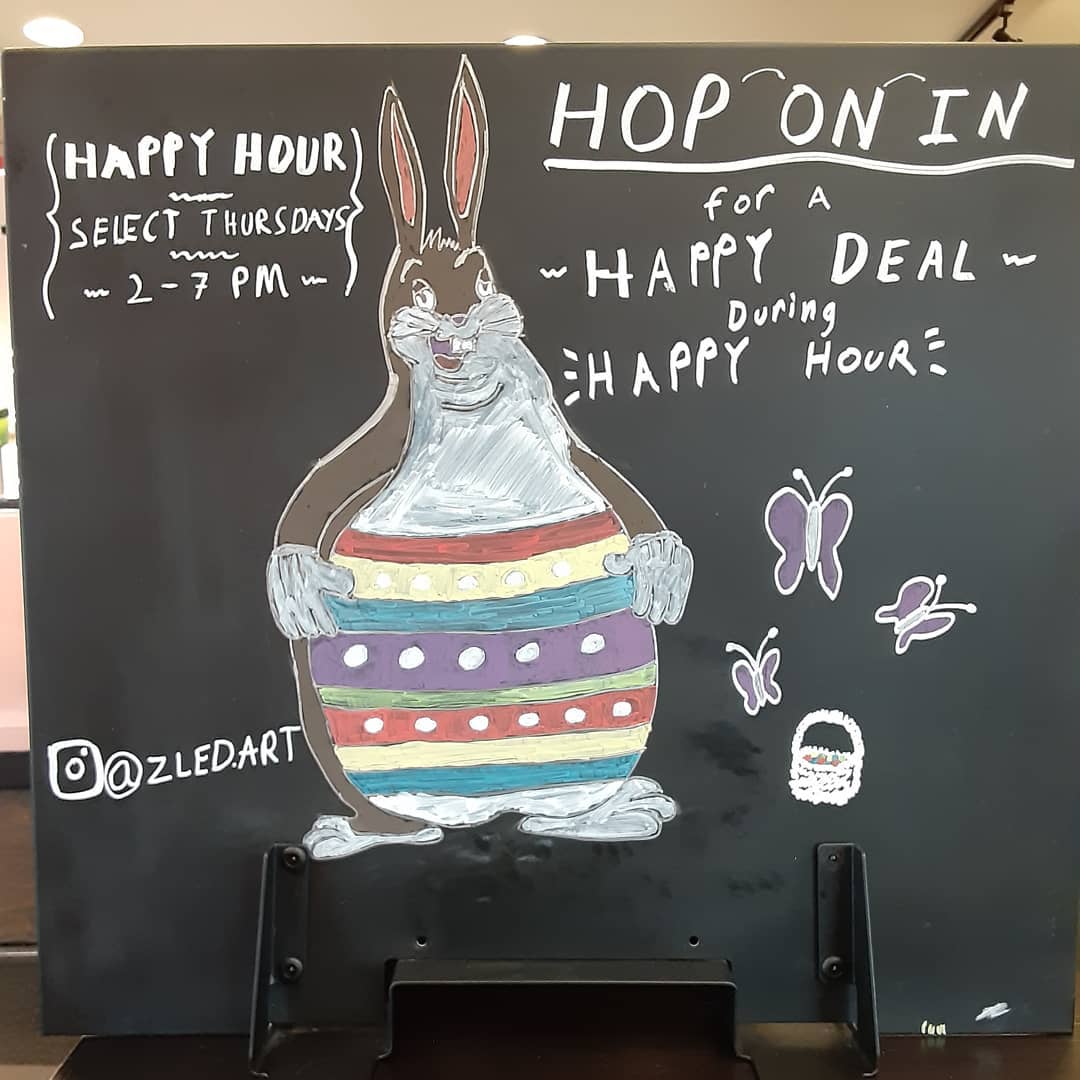 HAPPY HOUR
SELECT THURSDAYS
~ 2-7 PM ~
HOP ON IN
for A
~ HAPPY DEAL ~
During
HAPPY HOUR
@ZLED.ART